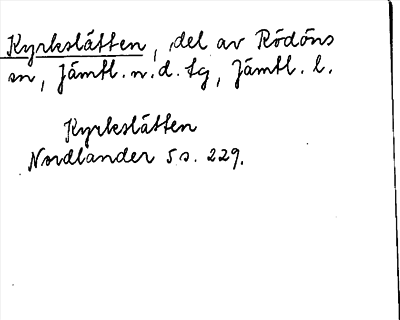 Kyrkslätten, del av Rödöns
sn, Jämtl. n. d. tg, Jämtl. l.
Kyrkslätten
Nordlander 5 s. 229.